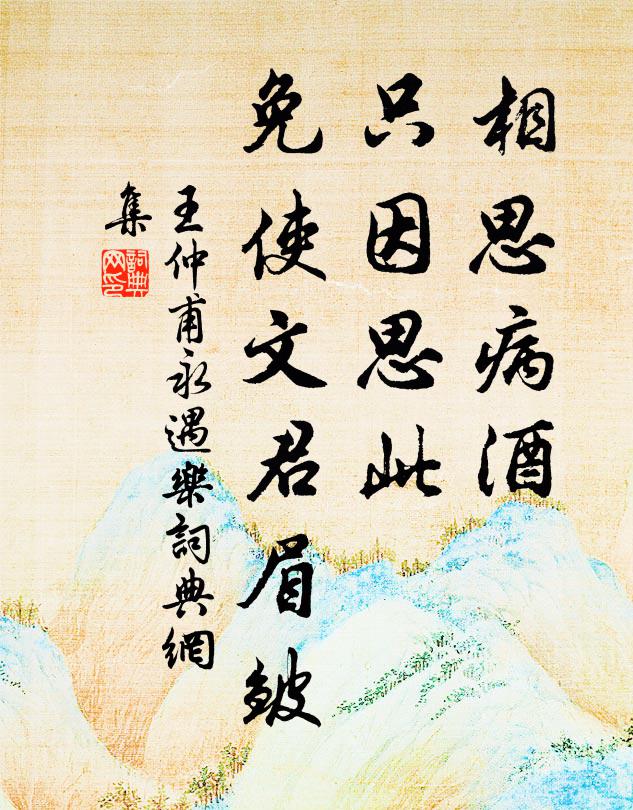 相思病酒
只因思此
免使文君眉皺
王仲甫永遇樂詞典網
集
詞典
网印